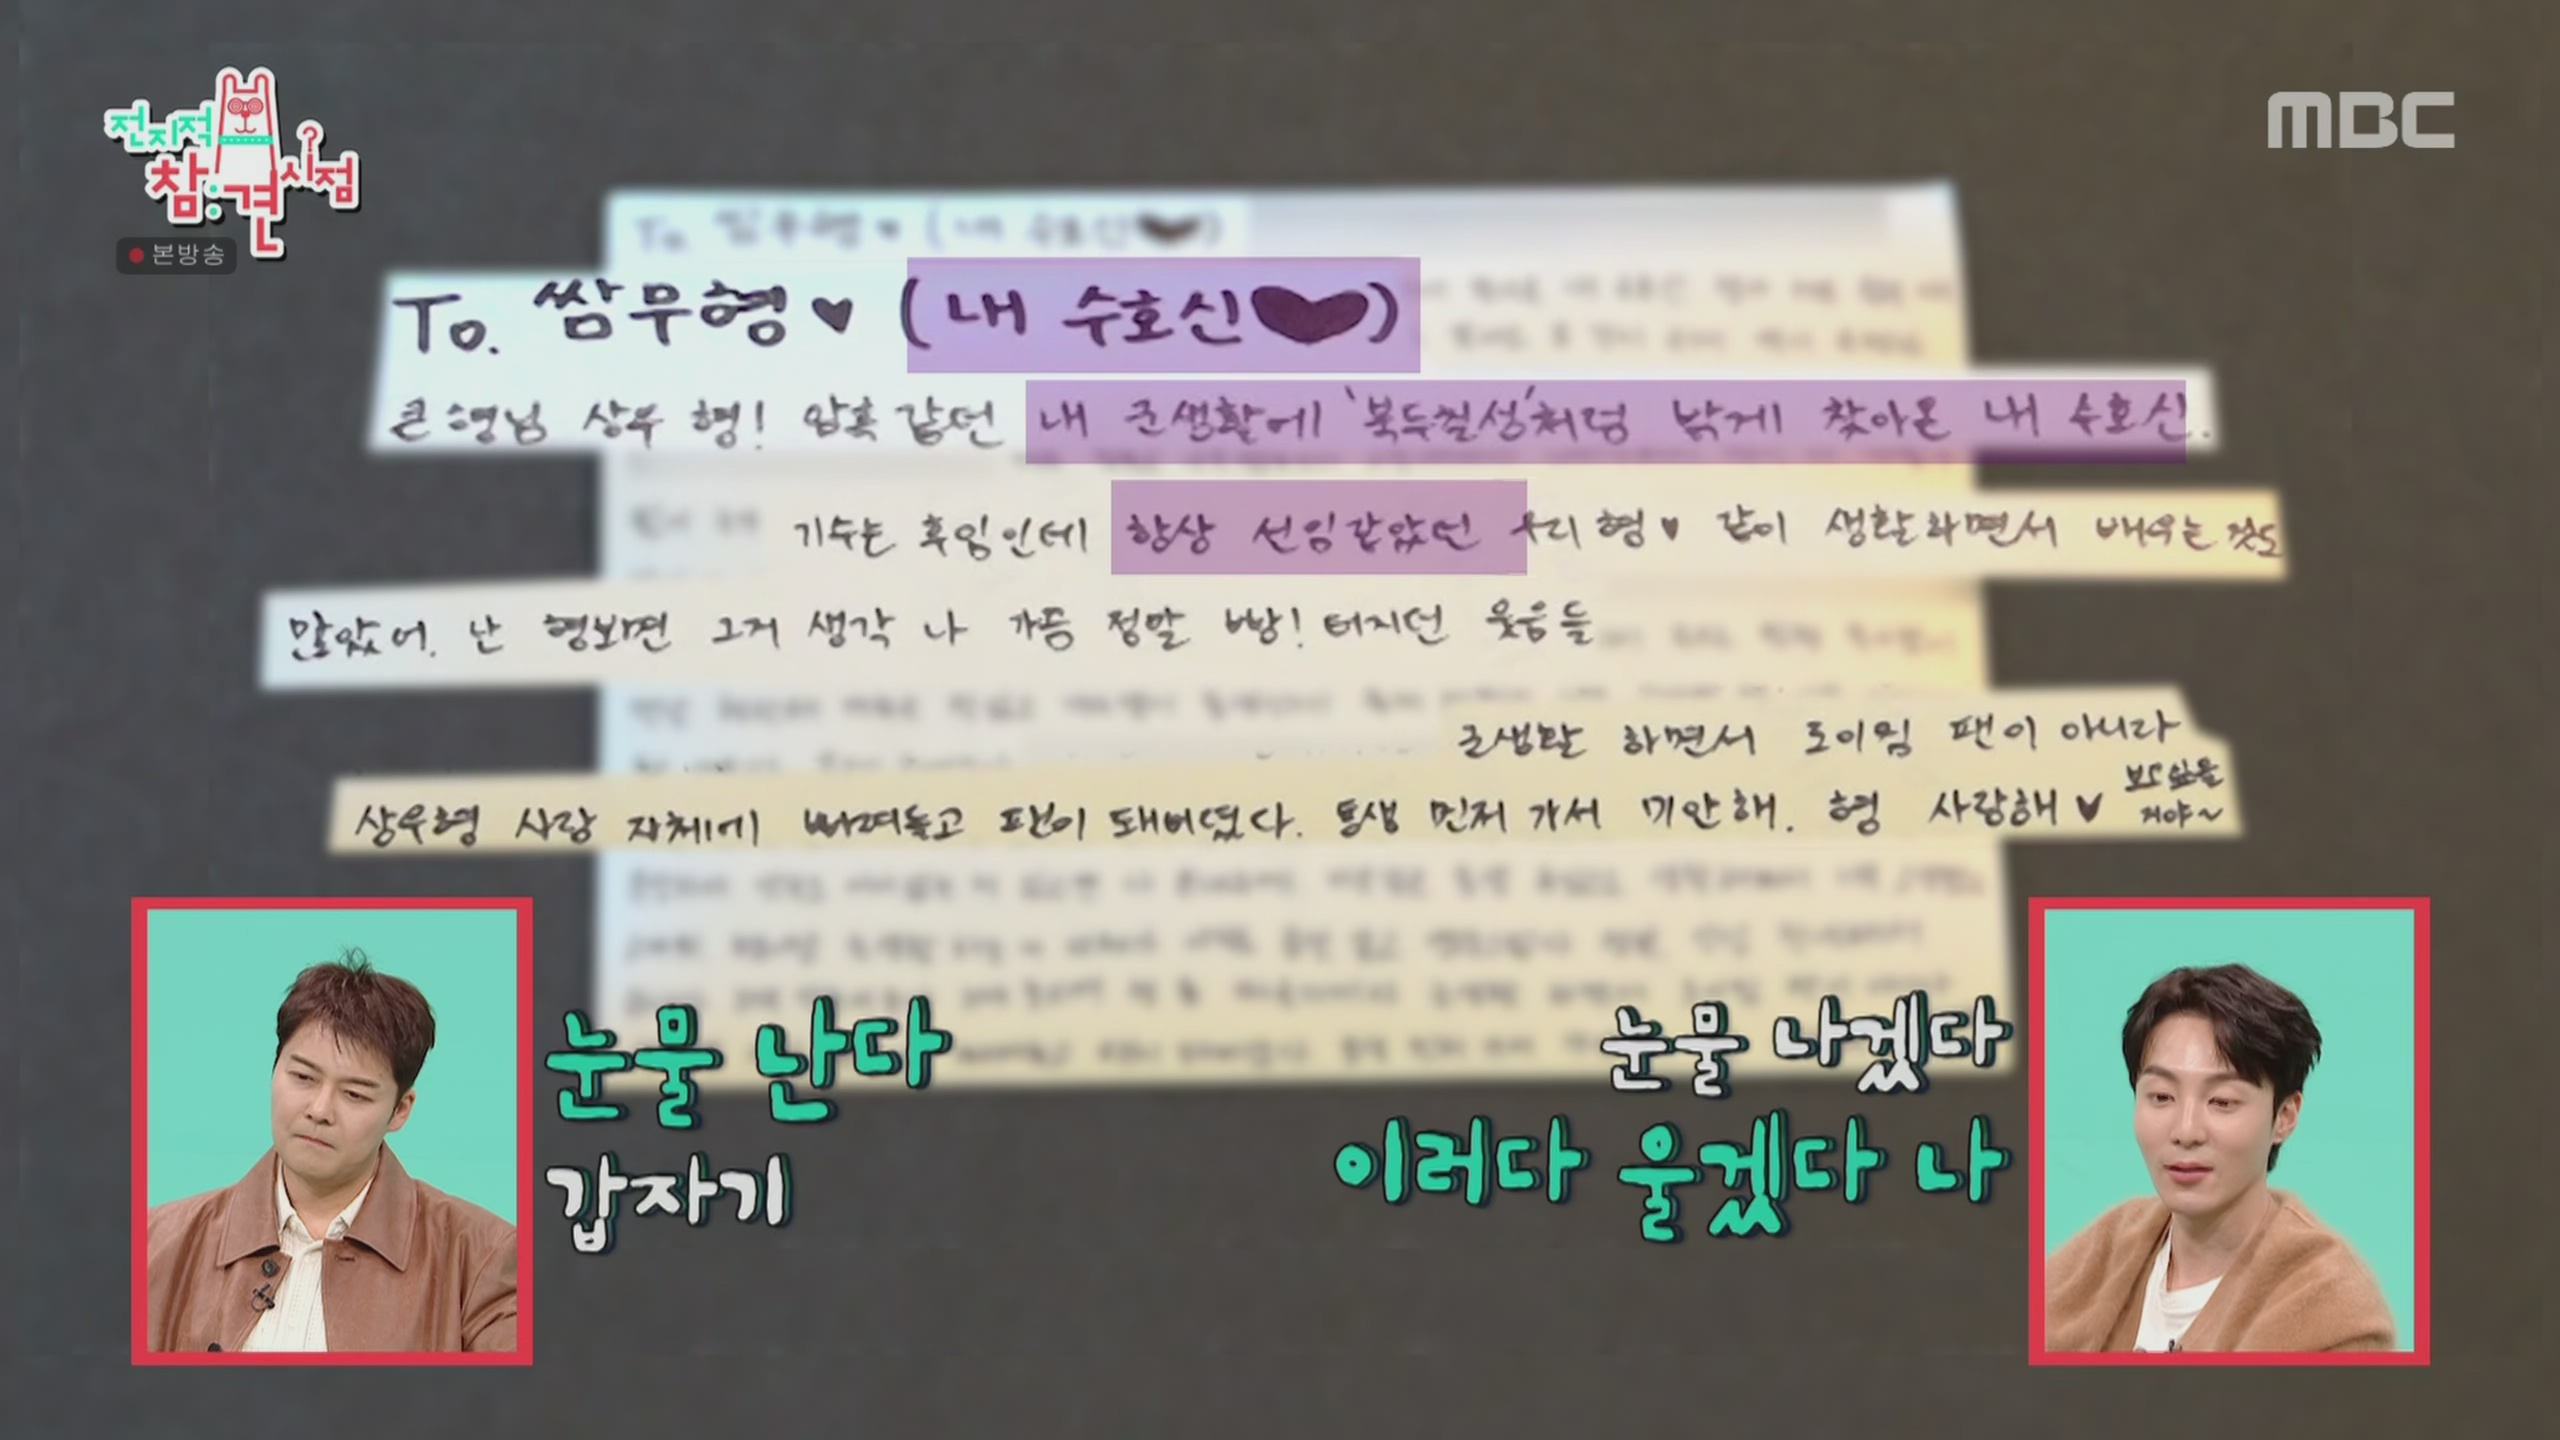 전지적
참견 시점
본방송
MBC
To. 쌈무형♥ (내 수호신♥)
큰형님 상우 형! 암흑 같던 내 군생활에 '북두칠성'처럼 밝게 찾아온 내 수호신.
기수는 후임인데 항상 선임같았던 우리 형♥ 같이 생활하면서 배우는 것도
많았어. 난 형보면 그거 생각 나 가끔 정말 빵! 터지던 웃음들
군생활 하면서 로이킴 팬이 아니라
상우형 사람 자체에 빠져들고 팬이 돼버렸다. 동생 먼저 가서 미안해. 형 사랑해♥ 보고싶을
거야~
눈물 난다
갑자기
눈물 나겠다
이러다 울겠다 나